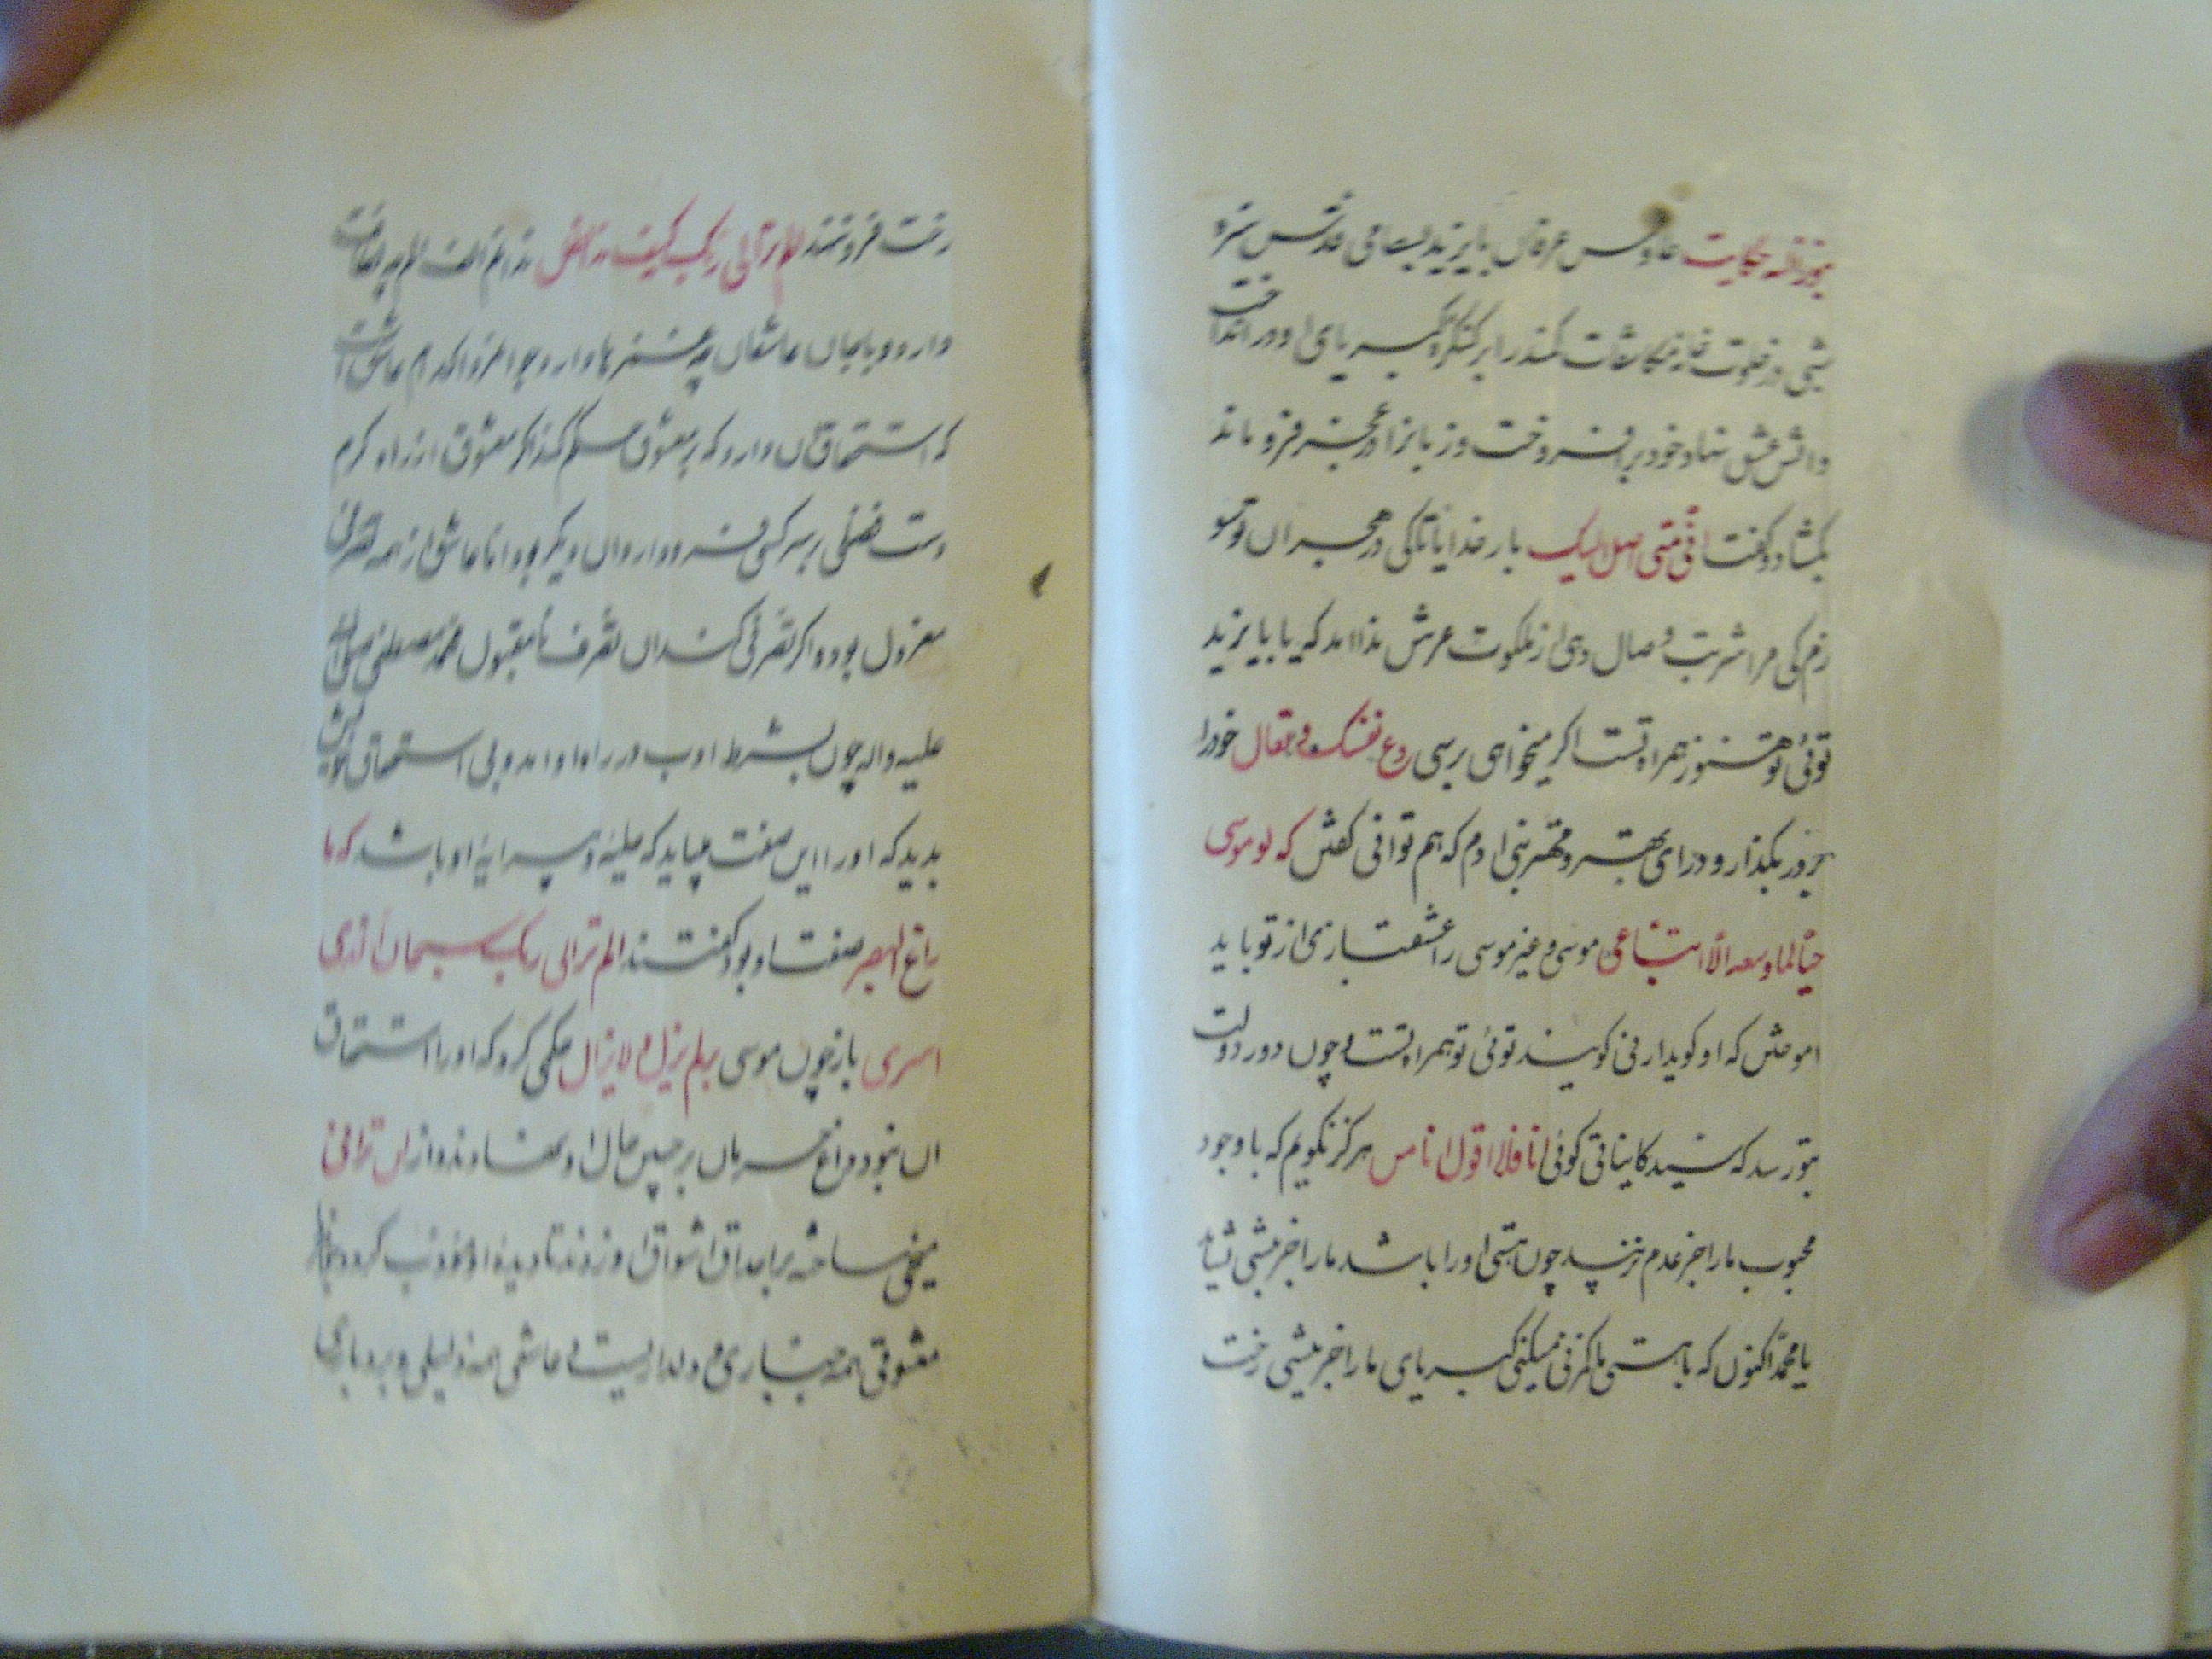 حکایت طاوس عرفان بایزید بسطامی قدس سره
شبی در خلوت خانه مکاشفات کمند را بر کنکره کبریای او در انداخت
واتش عشق نهاد خود بر افروخت وزبانرا در عجز فرو ماند
بکشاد وکفت الهی متی اصل الیک بار خدایا تا کی در هجران تو سو
زم کی مرا شربت وصال دهی از ملکوت عرش ندا امد که یا بایزید
توئی تو هنوز همراه تست اکر میخواهی برسی دع نفسک وتعال خود را
بر در بکذار و درای بهتر ومهتر بنی ادم که هم توانی کفتن که لو موسی
حیا لما وسعه الا اتباعی موسی وغیر موسی را عشقبازی از تو باید
اموختن که او کوید ارنی کویند توئی تو همراه تست وچون دور دولت
بتو رسد که سید کایناتی کوئی انا فلا اقول انا من هرکز نکویم که با وجود
محبوب ما را جز عدم نزیبد چون هستی او را باشد ما را جز نیستی نشاید
یا محمد اکنون که با هستی ما کزنی میکنی کبریای ما را جز نیستی رخت
رخت فروشند الم تر الی ربک کیف مد الظل
دارد وبا جان عاشقان چه دارد عاشق
که استحقاق ان دارد که بر معشوق حکم کند اکر معشوق از راه کرم
دست فضلی بر سر کسی فرود ارد ان دیکر بود اما عاشق از همه تصرفی
معزول بود واکر تصرفی کند ان تصرف نامقبول محمد مصطفی صلی الله
علیه واله چون بشرط ادب در راه او امد وبی استحقاق خویش
بدید که او را این صفت میباید که حلیه وپیرایه او باشد که ما
زاغ البصر صفت او بود کفتند الم تر الی ربک سبحان الذی
اسری باز چون موسی بر لم یزل ولا یزال حکمی کرد که او را استحقاق
ان نبود داغ حرمان بر جبین حال او نهادند واز لن ترانی
میخی ساخته بر احداق اشواق او زدند تا دیده او
معشوقی همه جباری ودلداریست وعاشقی همه ذلیلی وبردباری